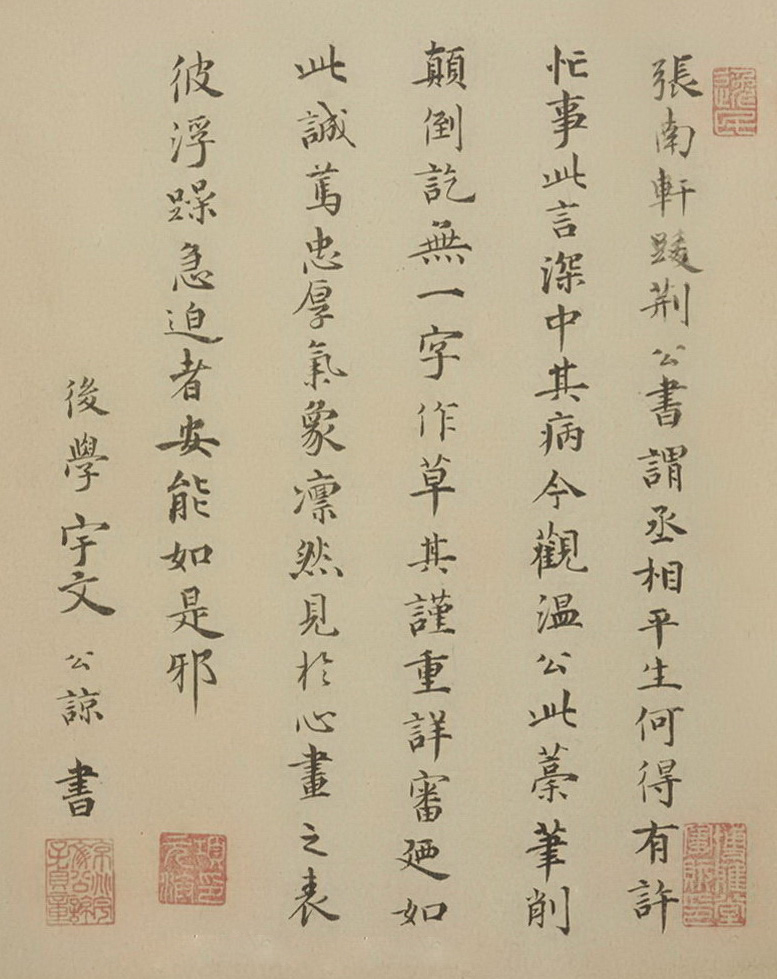 張南軒跋荊公書謂丞相平生何得有許
忙事此言深中其病今觀溫公此藁筆削
顛倒訖無一字作草其謹重詳審廼如
此誠篤忠厚氣象凛然見於心畫之表
彼浮躁急迫者安能如是邪
後學宇文公諒書